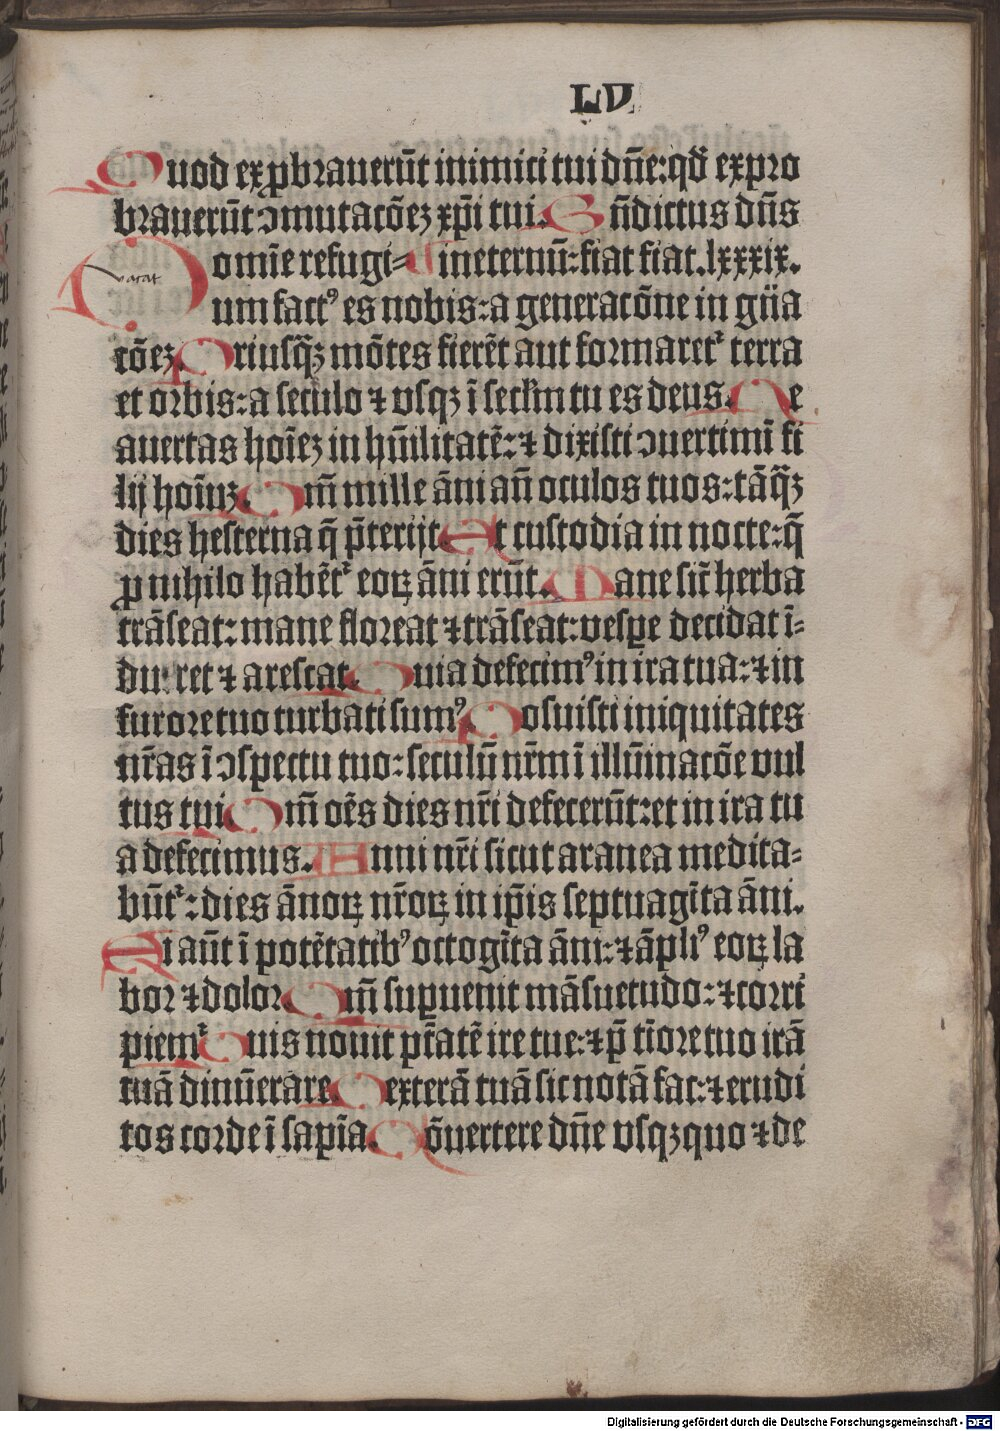 LV
Quod exꝓbrauerūt inimici tui dn̄e:qd̄ expro
brauerūt ↄmutacōeꝫ xp̄i tui. Bn̄dictus dn̄s
vacat
Domīe refugi⸗ Jn eternū:fiat fiat.lxxxix.
um factꝰ es nobis:a generacōne in gn̄a
cōeꝫ. Priusq̄ꝫ mōtes fierēt aut formaretᷣ terra
et orbis:a seculo ⁊ vsqꝫ ī secl̄m tu es deus. Ne
auertas hoīeꝫ in hūilitatē:⁊ dixisti ↄuertimī fi
lij hoīuꝫ. Qm̄ mille āni an̄ oculos tuos:tāq̄ꝫ
dies hesterna q̄ p̄terijt. Et custodia in nocte:q̄
ꝓ nihilo habētᷣ eoꝝ āni erūt. Mane sic̄ herba
trāseat:mane floreat ⁊ trāseat:vesꝑe decidat ī⸗
duret ⁊ arescat. Quia defecimꝰ in ira tua:⁊ in
furore tuo turbati sumꝰ. Posuisti iniquitates
nr̄as ī ↄspectu tuo:seculū nr̄m ī illūinacōe vul
tus tui. Qm̄ oēs dies nr̄i defecerūt:et in ira tu
a defecimus. Anni nr̄i sicut aranea medita⸗
būtᷣ:dies ānoꝝ nr̄oꝝ in ip̄is septuagīta āni.
Si aūt ī potētatibꝰ octogīta āni:⁊ āpliꝰ eoꝝ la
bor ⁊ dolor. Qm̄ suꝑuenit māsuetudo:⁊ corri
piemᷣ. Quis nouit pt̄atē ire tue:⁊ p̄ tīore tuo irā
tuā dinūerare. Dexterā tuā sic notā fac:⁊ erudi
tos corde ī sapīa. Cōuertere dn̄e vsqꝫquo ⁊ de
Digitalisierung gefördert durch die Deutsche Forschungsgemeinschaft - DFG